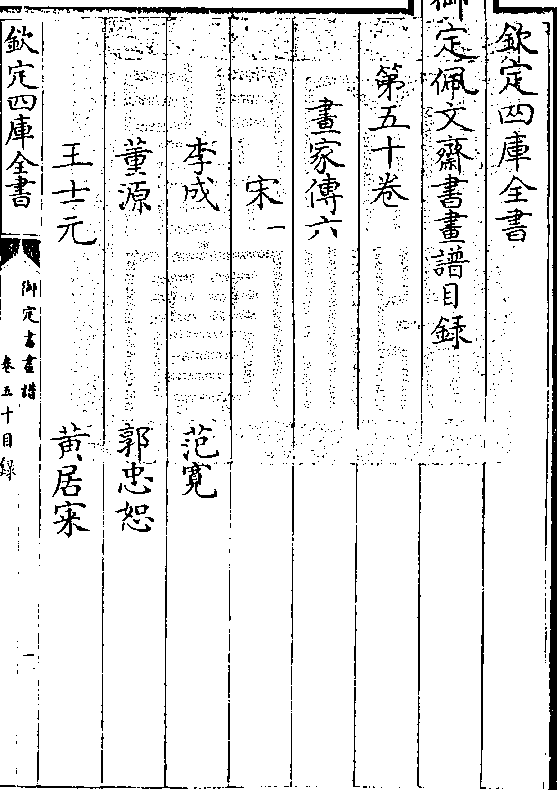 欽定四庫全書
御定佩文齋書畫譜目録
第五十卷
畫家傳六
宋一
李成
范寛
董源
郭忠恕
王士元
黄居寀
欽定四庫全書
御定書畫譜
卷五十目録
一